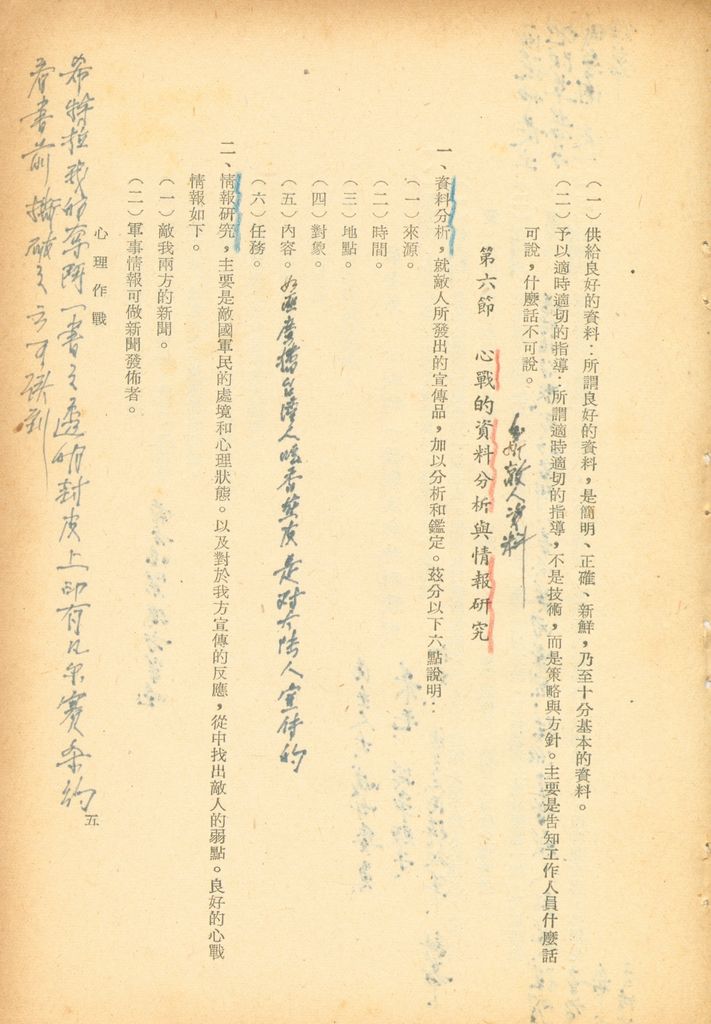 (一)供給良好的資料：所謂良好的資料，是簡明、正確、新鮮，乃至十分基本的資料。
(二)予以適時適切的指導：所謂適時適切的指導，不是技術，而是策略與方針。主要是告知工作人員什麼話
可說，什麼話不可說。
敵人資料
第六節　心戰的資料分析與情報研究
一、資料分析，就敵人所發出的宣傳品，加以分析和鑑定。茲分以下六點說明：
(一)來源。
(二)時間。
(三)地點。
(四)對象。
(五)內容。如匪廣播台灣人吃香蕉皮是对大陆人宣传的
(六)任務。
二、情報研究，主要是敵國軍民的處境和心理狀態。以及對於我方宣傳的反應，從中找出敵人的弱點。良好的心戰
情報如下。
(一)敵我兩方的新聞。
(二)軍事情報可做新聞發佈者。
心理作戰
五
希特拉我的奋鬥一書之透明封皮上印有凡尔賽条約
看書前撕破之方可讀到